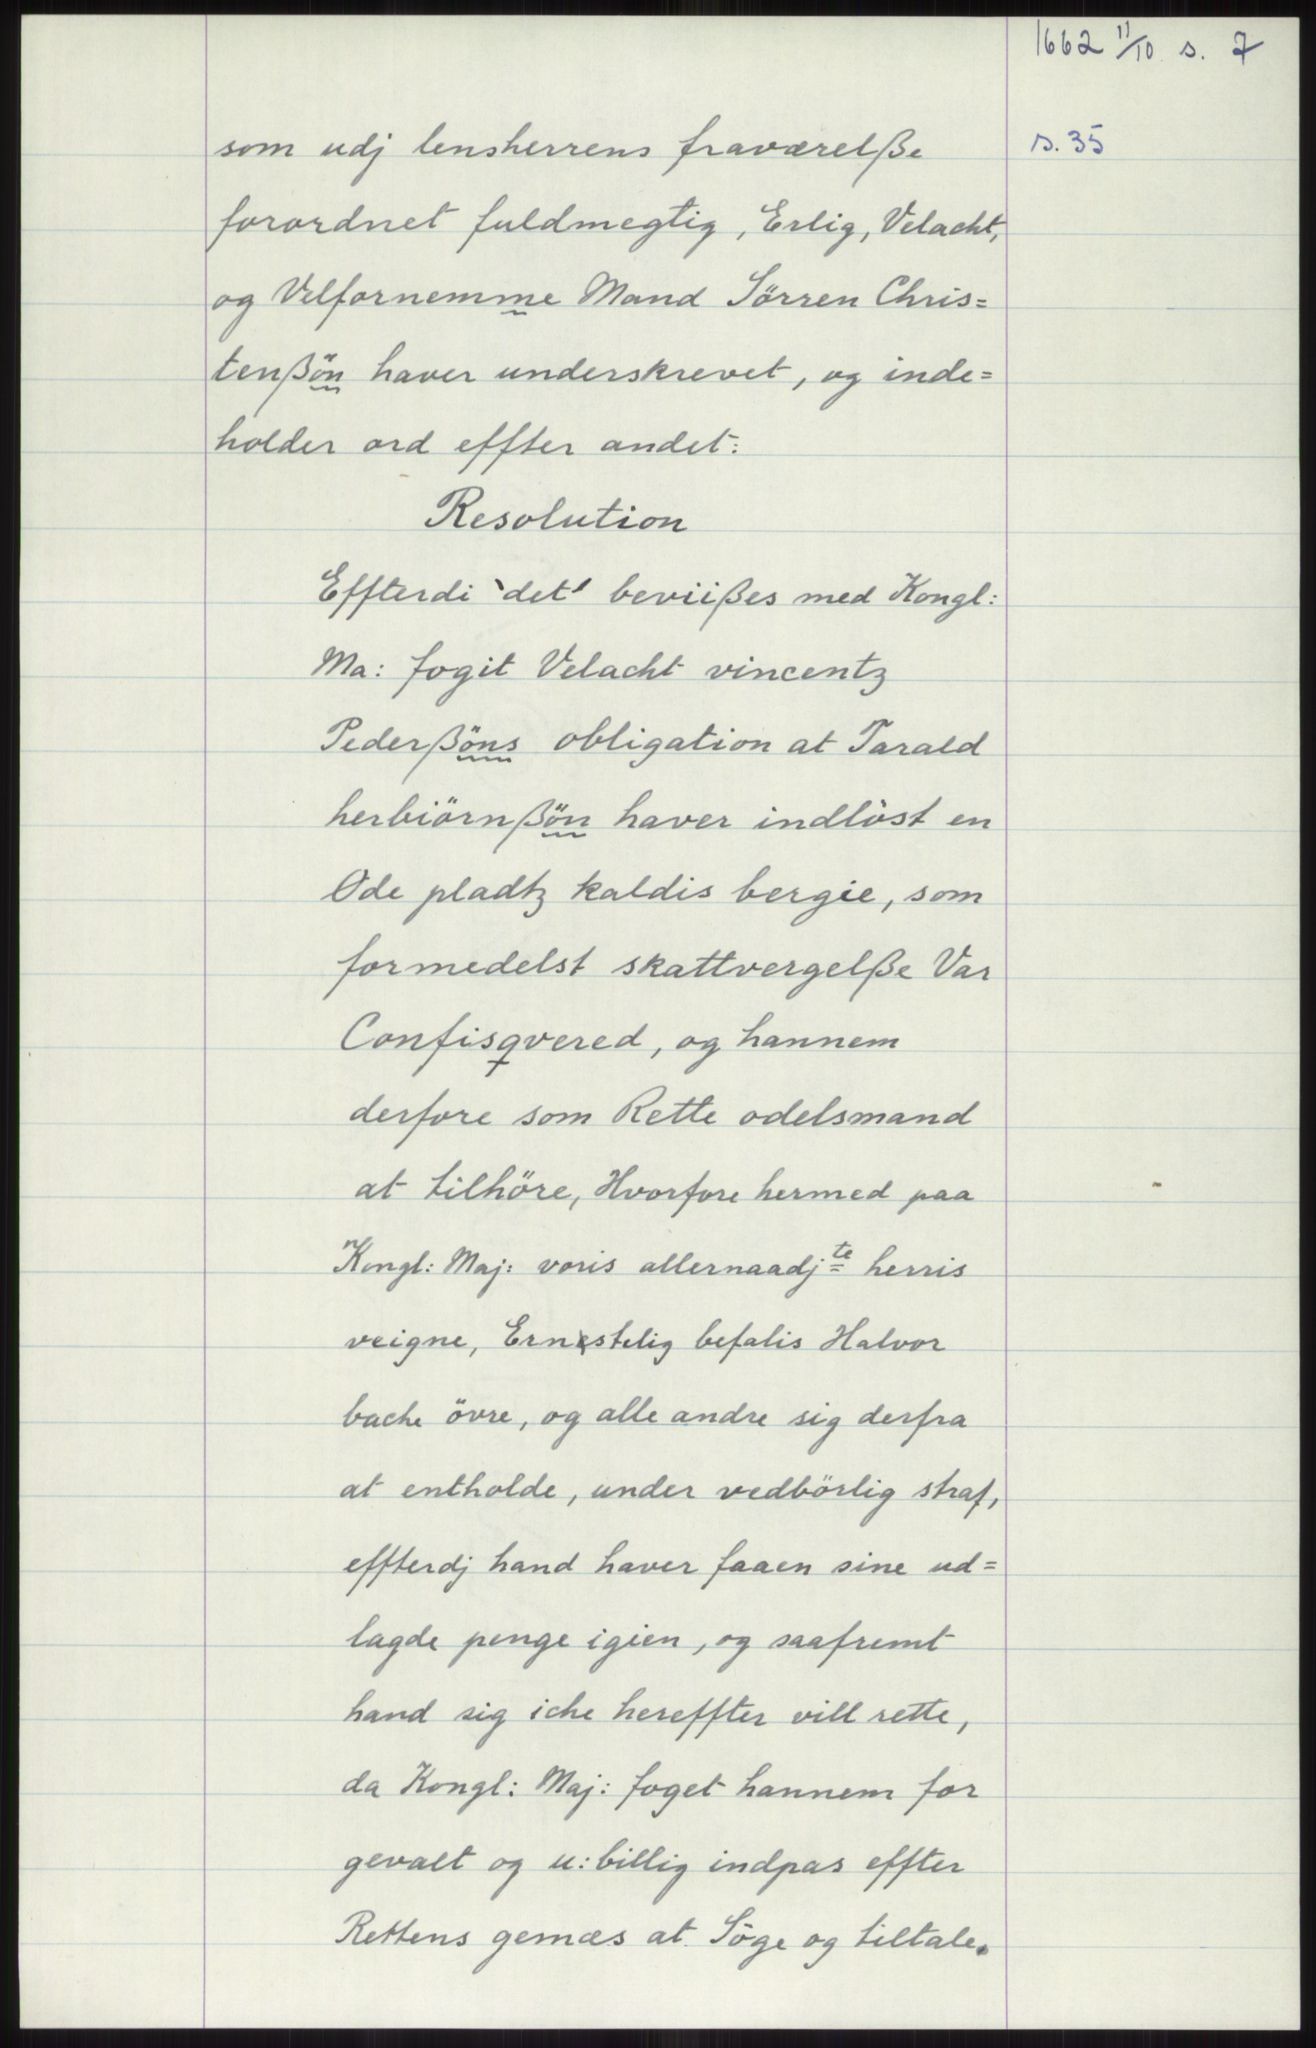 1662 11/10 s. 7
s. 35
som udj lensherrens fraværelße
forordnet fuldmegtig, Erlig, Velacht,
og Velfornemme Mand Sörren Chris=
tenßön haver underskrevet, og inde=
holder ord effter andet:
Resolution
Effterdi `det´ beviißes med Kongl:
Ma: fogit Velacht vincentz
Pederßöns obligation at Tarald
herbiörnßön haver indlöst en
Øde pladtz kaldis bergie, som
formedelst skattvergelße Var
Confisqvered, og hannem
derfore som Rette odelsmand
at tilhöre, Hvorfore hermed paa
Kongl: Maj: voris allernaadjte herris
veigne, Ernstelig befalis Halvor
bache övre, og alle andre sig derfra
at entholde, under vedbörlig straf,
effterdj hand haver faaen sine ud=
lagde penge igien, og saafremt
hand sig iche hereffter vill rette,
da Kongl: Maj: foget hannem for
gevalt og u:billig indpas effter
Rettens gemæs at Söge og tiltale.